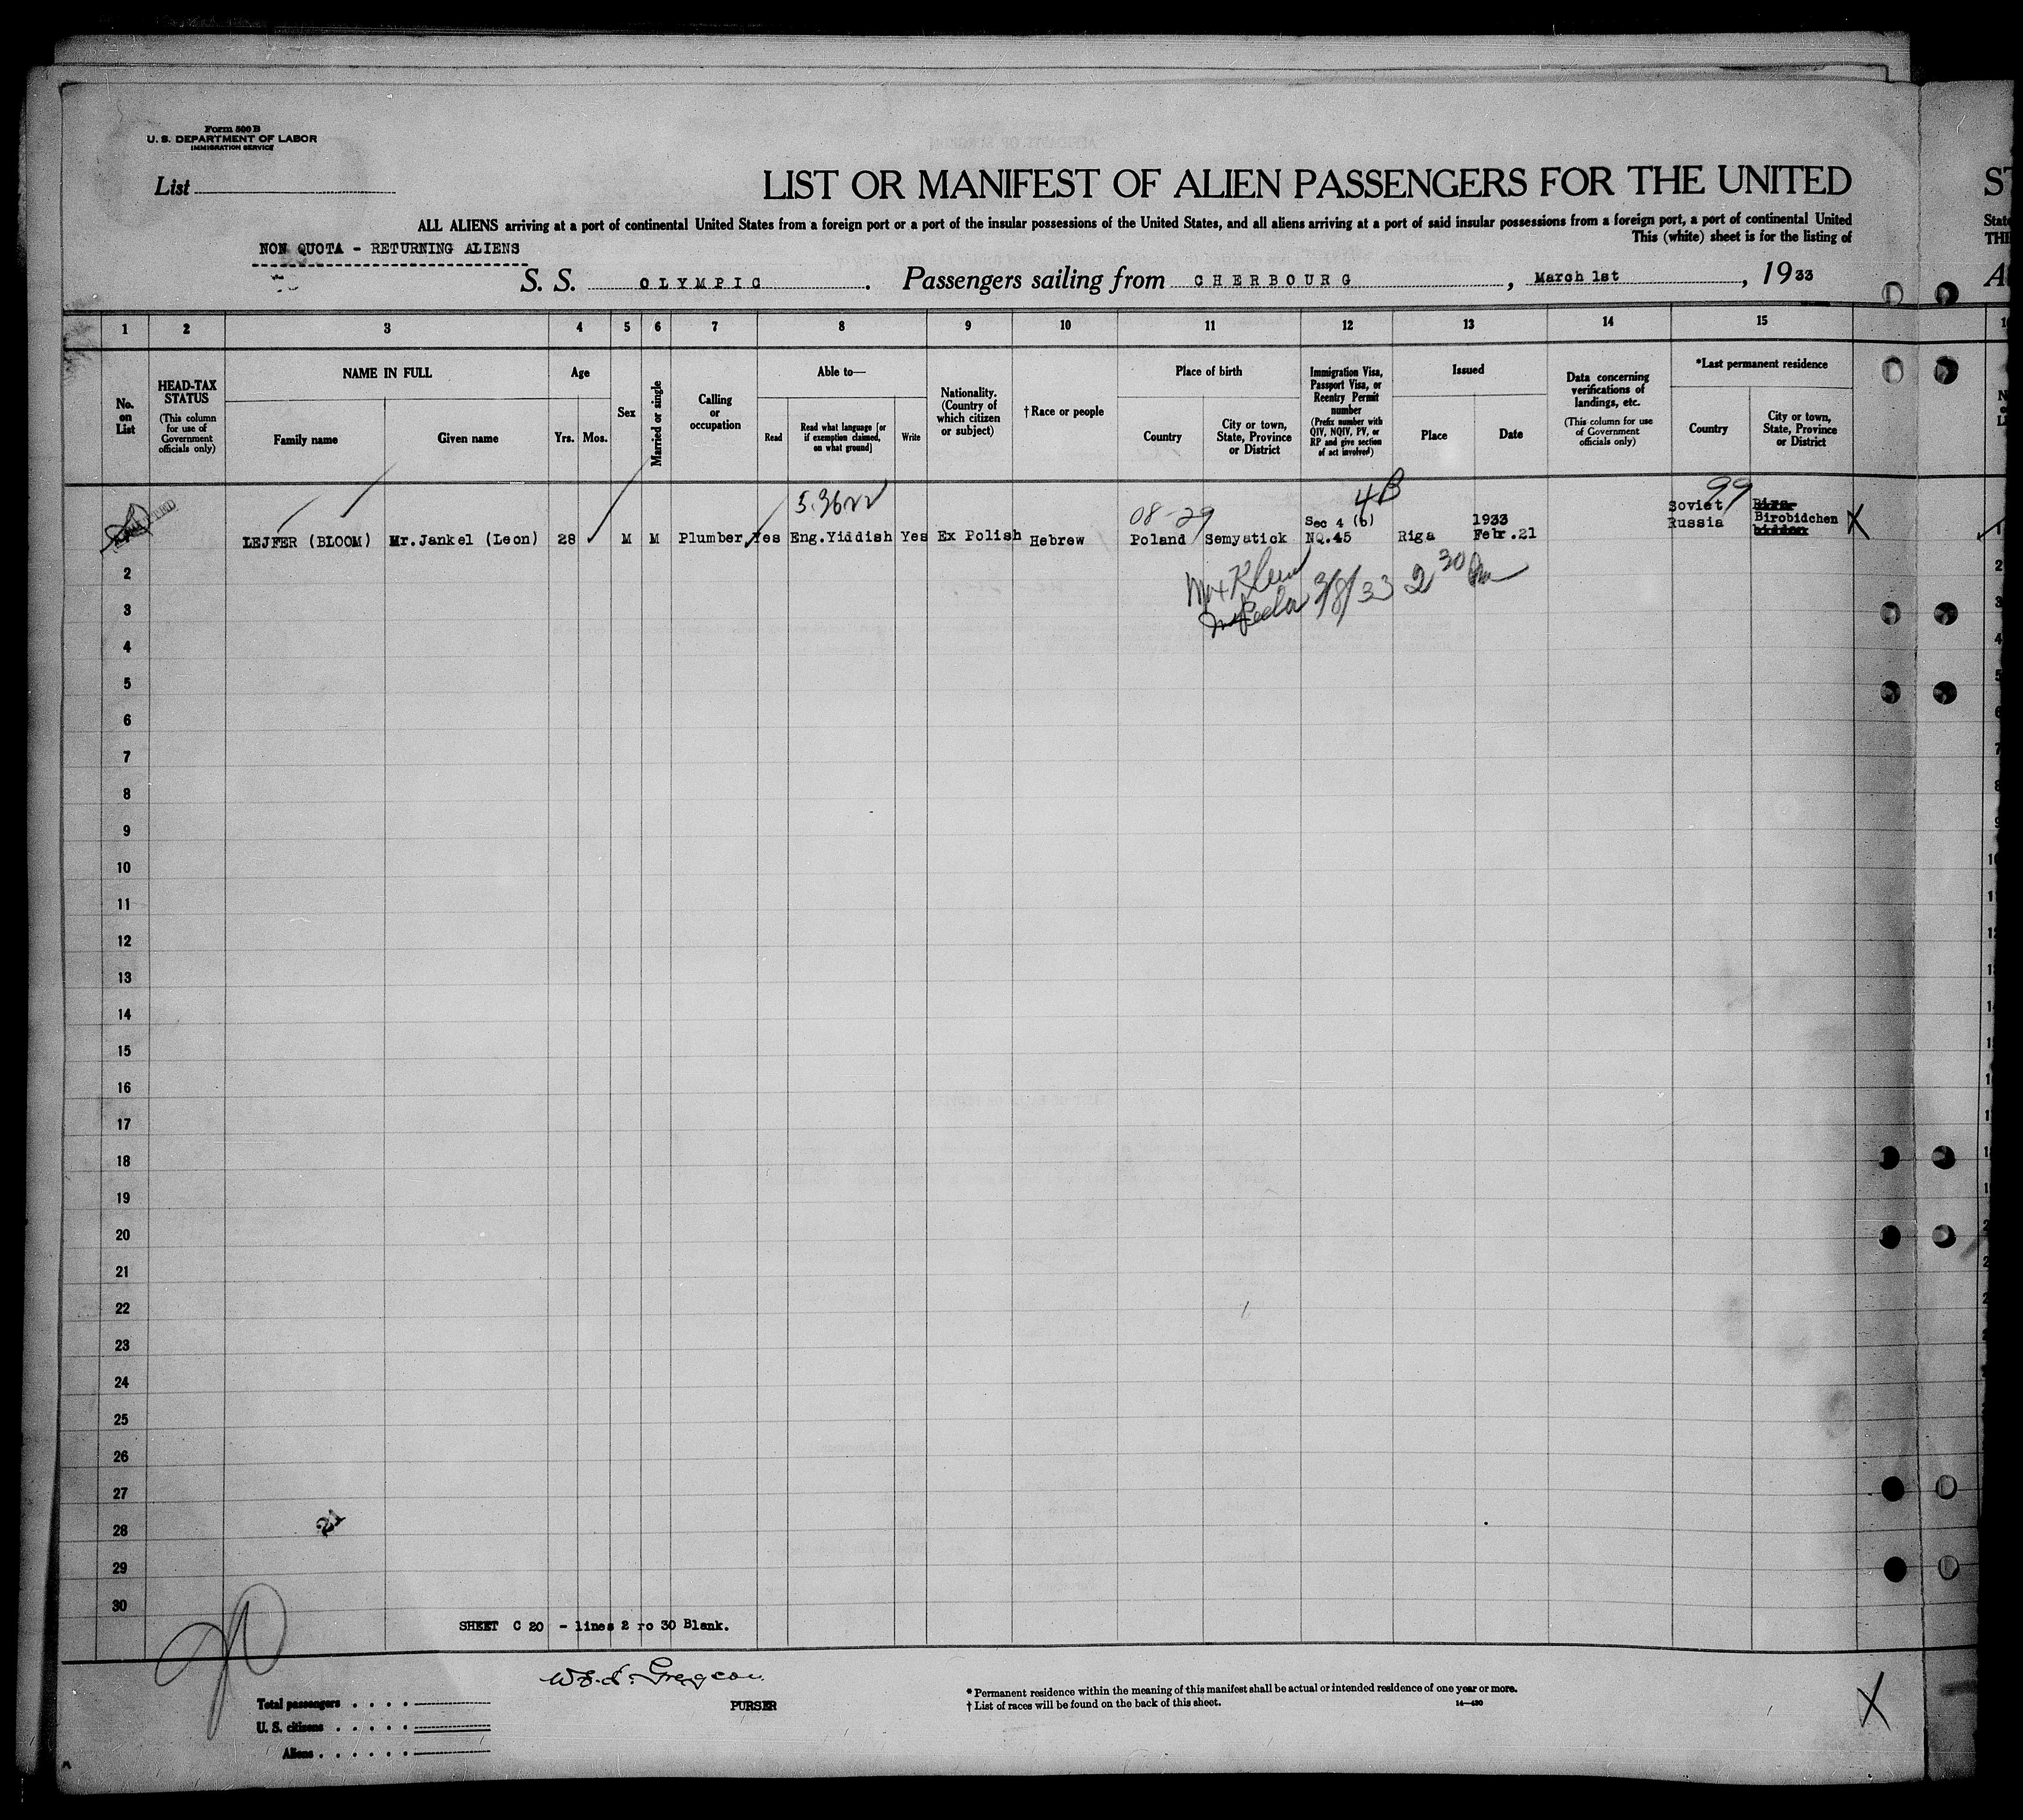 Form 500 B
U. S. DEPARTMENT OF LABOR
IMMIGRATION SERVICE
List
LIST OR MANIFEST OF ALIEN PASSENGERS FOR THE UNITED
ST
ALL ALIENS arriving at a port of continental United States from a foreign port or a port of the insular possessions of the United States, and all aliens arriving at a port of said insular possessions from a foreign port, a port of continental United
State
This (white) sheet is for the listing of
THI
NON QUOTA - RETURNING ALIENS
S. S. OLYMPIC. Passengers sailing from CHERBOURG, March 1st, 1933
1 2 3 4 5 6 7 8 9 10 11 12 13 14 15
No. on List
HEAD-TAX STATUS
(This column for use of Government officials only)
NAME IN FULL
Family name
Given name
Age
Yrs. Mos.
Sex
Married or single
Calling or occupation
Able to—
Read
Read what language [or if exemption claimed, on what ground]
Write
Nationality. (Country of which citizen or subject)
† Race or people
Place of birth
Country
City or town, State, Province or District
Immigration Visa, Passport Visa, or Reentry Permit number
(Prefix number with QIV, NQIV, PV, or RP and give section of act involved)
Issued
Place
Date
Data concerning verifications of landings, etc.
(This column for use of Government officials only)
*Last permanent residence
Country
City or town, State, Province or District
5.3622
08-29
4B
99
LEJFER (BLOOM) Mr.Jankel (Leon) 28 M M Plumber Yes Eng.Yiddish Yes Ex Polish Hebrew Poland Semyatick Sec 4 (b) NQ.45 Riga 1933 Febr.21 Soviet Russia Birobidchen X
Max Klein
3/8/33 2 30 Pm
2
3
4
5
6
7
8
9
10
11
12
13
14
15
16
17
18
19
20
21
22
23
24
25
26
27
28
29
30
21
SHEET C 20 - lines 2 ro 30 Blank.
PURSER
Total passengers
U. S. citizens
Aliens
* Permanent residence within the meaning of this manifest shall be actual or intended residence of one year or more.
† List of races will be found on the back of this sheet.
14—430
X